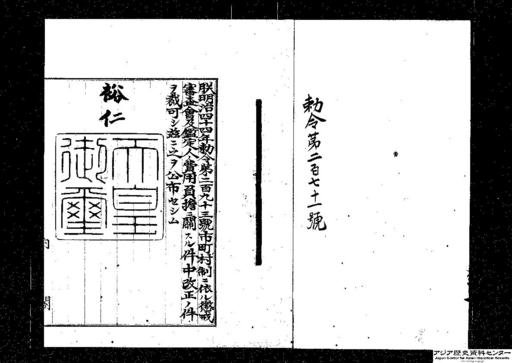 勅令第二百七十一號
朕明治四十四年勅令第二百九十三號市町村制ニ依ル懲戒
審査會及鑑定人ノ費用負擔ニ關スル件中改正ノ件
ヲ裁可シ茲ニ之ヲ公布セシム
裕仁
天皇
御璽
内閣
アジア歴史資料センター
Japan Center for Asian Historical Records